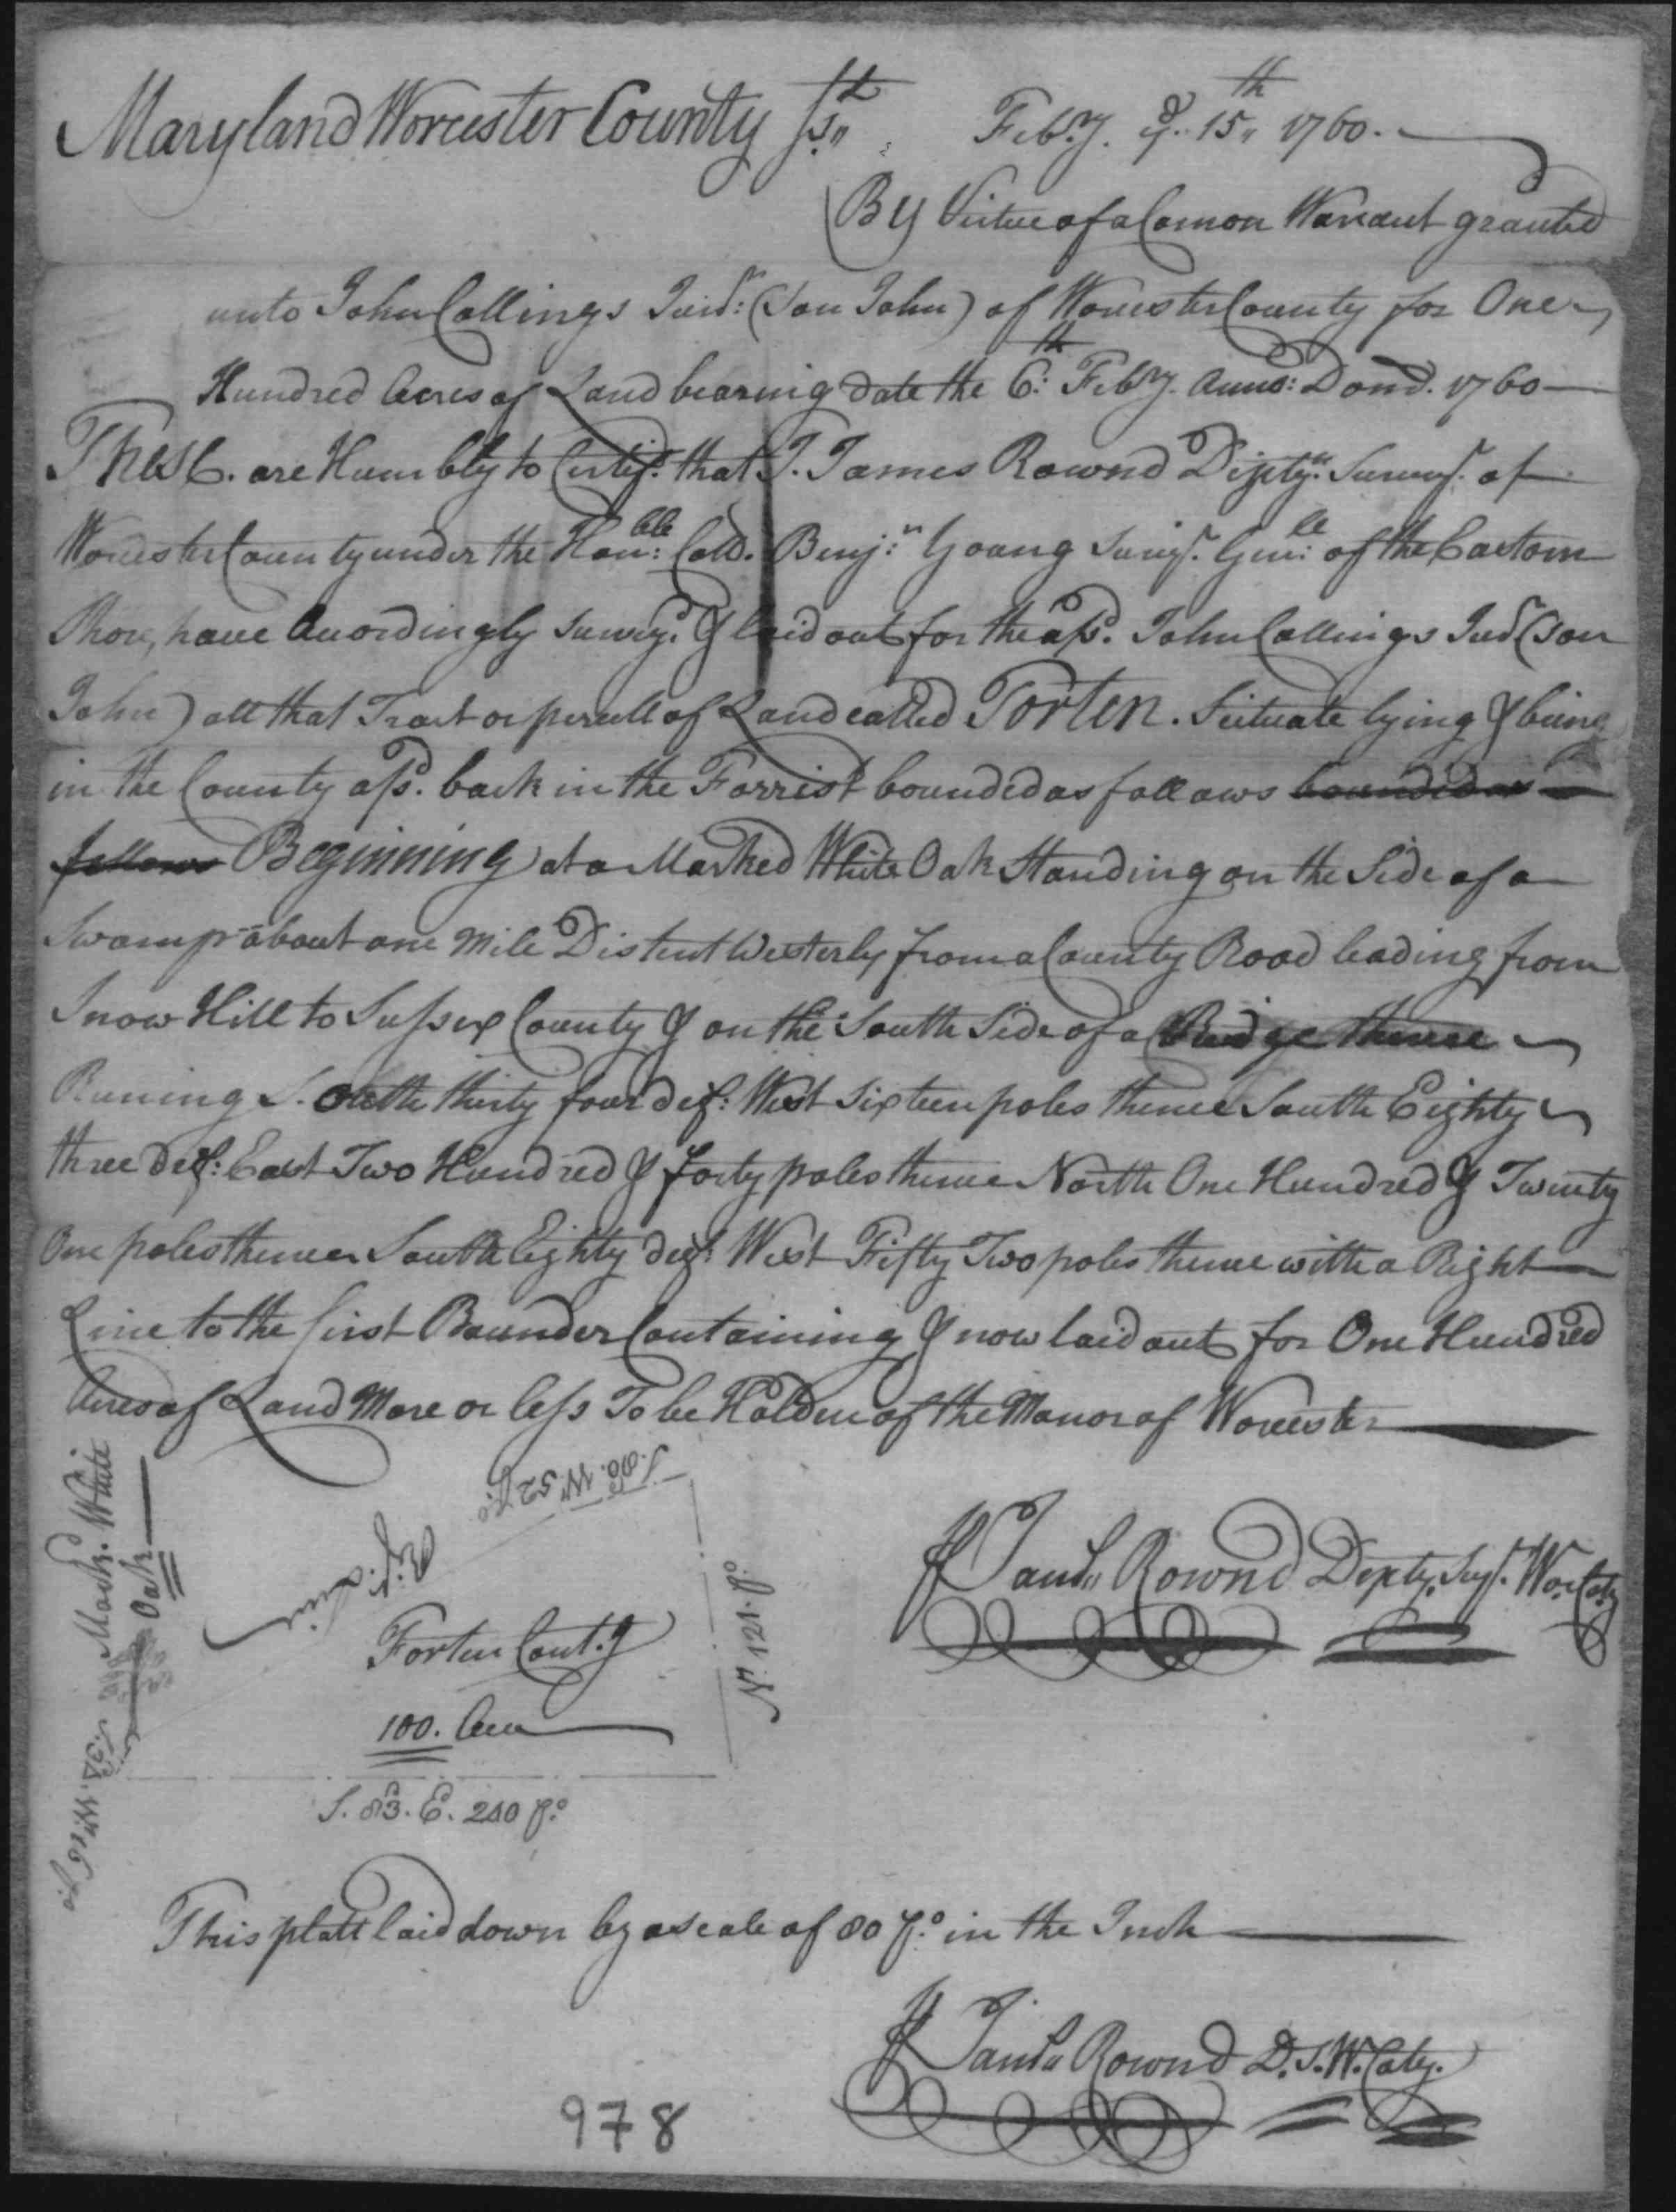 Maryland Worcester County Sst. Febry. ye. 15th 1760.
By Virtue of a Comon Warrant granted
unto John Collings Junr: (Son John) of Worcester County for One
Hundred Acres of Land bearing date the 6th: Febry. Anno: Domo. 1760
These. are Humbly to Certify. that I. James Rownd Depty. Surveyr. of
Worcester County under the Honble: Collo. Benjn: Young Survyr. Genle: of the Eastorn
Shore, have Accordingly Survey'd. & laid out for the afsd. John Collings Junr (Son
John) all that Tract or percell of Land called Forten. Scituate lying & being
in the County afsd. back in the Forrist bounded as follows bounded as
follows Beginning at a Marked White Oak Standing on the Side of a
Swamp about one Mile Distent Westerly from a County Road leading from
Snow Hill to Sussex County & on the South Side of a Ridge thence
Runing South thirty four degs: West Sixteen poles thence South Eighty
three degs: East Two Hundred & forty poles thence North One Hundred & Twenty
One poles thence South Eighty degs: West Fifty Two poles thence with a Right
Line to the first Bounder Containing & now laid out for One Hundred
Acres of Land More or less To be Holden of the Manor of Worcester
S. 80. W. 52 po.
Markd. White
Oak
Rigt. Line
Forten Contg
100. Acres
N. 121. po.
S. 34. W. 16 po
S. 83. E. 240 po.
Jams. Rownd Depty. Sur. Wor. Coty
This platt laid down by a scale of 80 po. in the Inch
Jams. Rownd D. S. W. Coty.
978